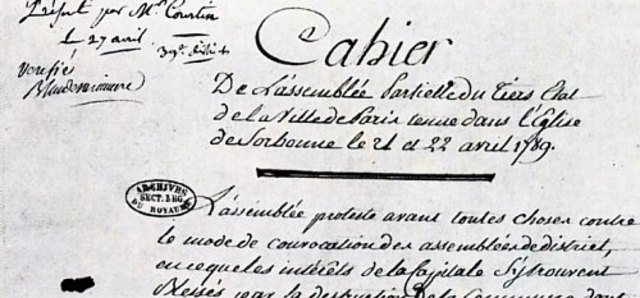 Présenté par Mr. Courtin
l. 27 avril
39e. district
verifié
Cahier
De L'assemblée Partielle du tiers Etat
de la ville de Paris tenue dans l'Eglise
de Sorbonne le 21 et 22 avril 1789.
ARCHIVES
SECT. LEG.
DU ROYAUME
L'assemblée proteste avant toutes choses contre
le mode de convocation des assemblées de district,
en ce que les intérêts de la Capitale s'y trouvent
blessés par la destruction de la Commune dont